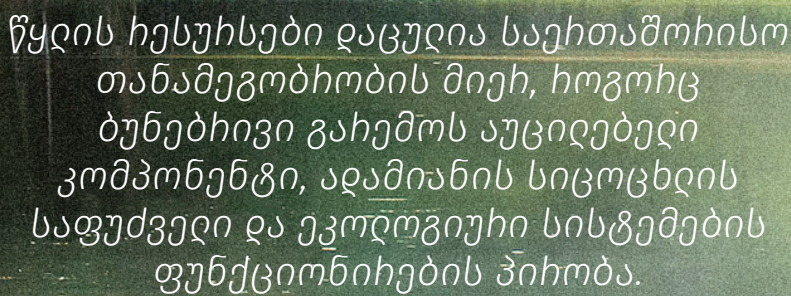 წყლის რესურსები დაცულია საერთაშორისო
თანამეგობრობის მიერ, როგორც
ბუნებრივი გარემოს აუცილებელი
კომპონენტი, ადამიანის სიცოცხლის
საფუძველი და ეკოლოგიური სისტემების
ფუნქციონირების პირობა.